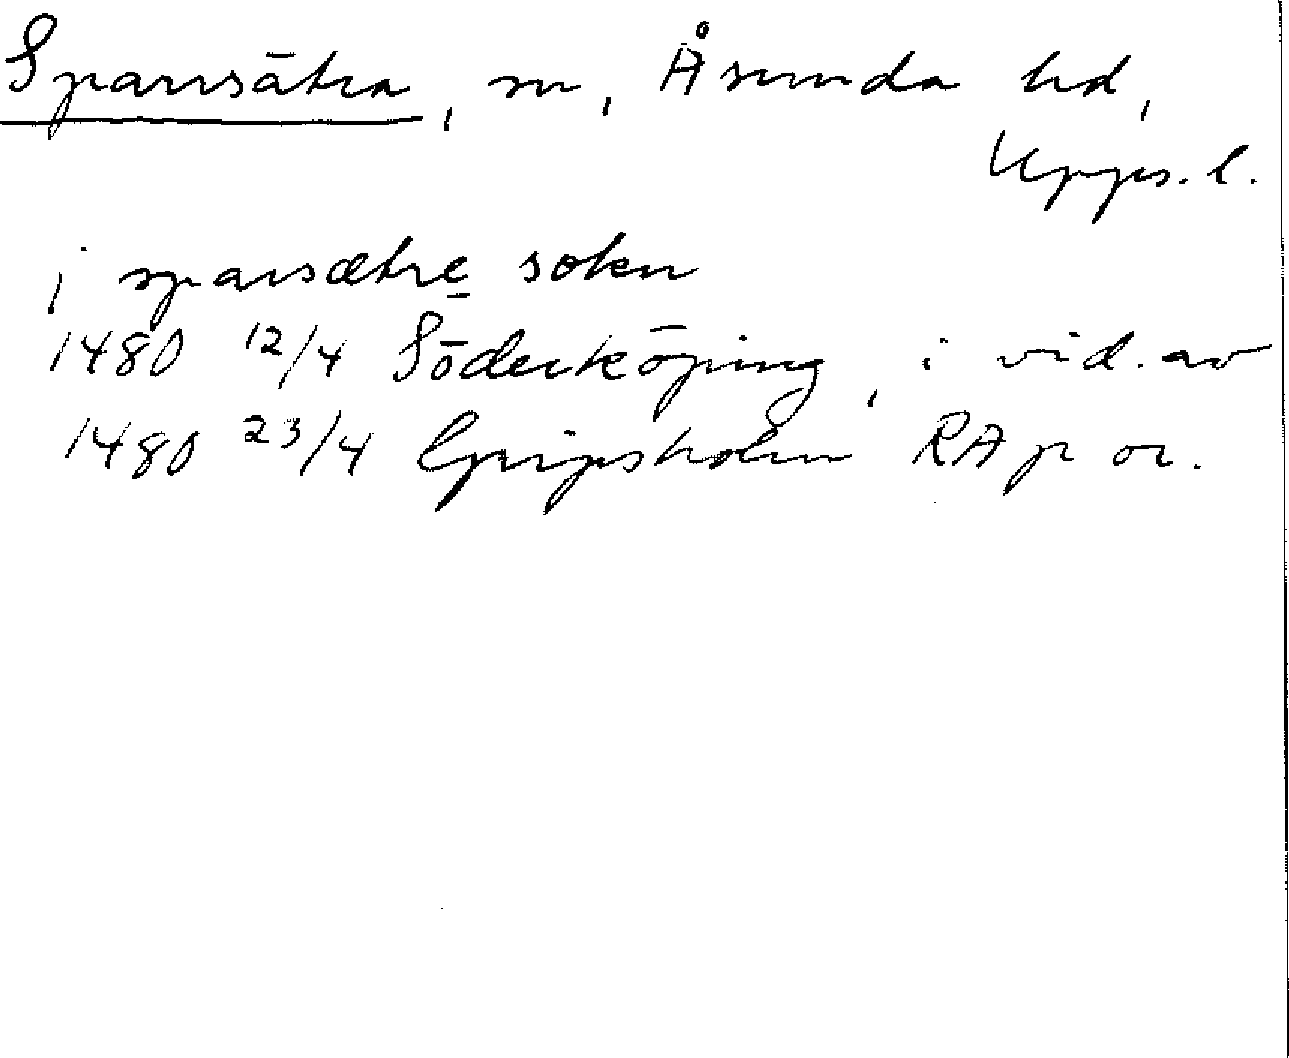 Sparrsätra, sn, Åsunda hd,
Upps. l.
j sparsætre sokn
1480 12/4 Söderköping, i vid. av
1480 23/4 Gripsholm RAp or.